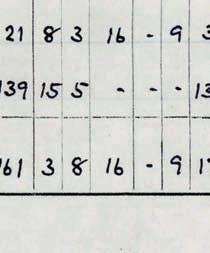 21 8 3 16 - 9 3
139 15 5 - - - 13
161 3 8 16 - 9 1